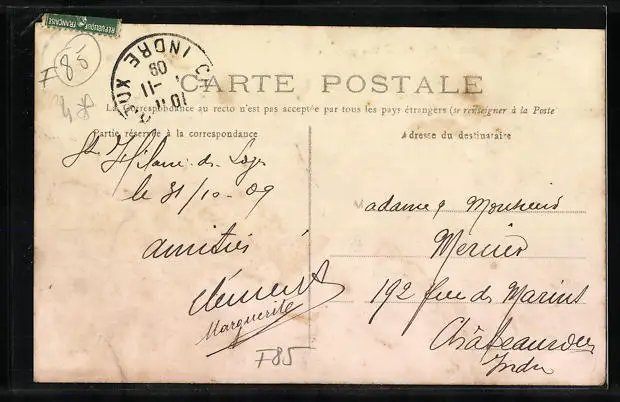 REPUBLIQUE FRANCAISE
F85
INDRE
CARTE POSTALE
La Correspondance au recto n'est pas acceptée par tous les pays étrangers (se renseigner à la Poste
Partie réservée à la correspondance
Adresse du destinataire
St Hilaire des Loges
le 31/10-09
amitiés
Clément
Marguerite
F85
Madame & Monsieur
Mercier
192 Rue des Marins
Châteauroux
Indre